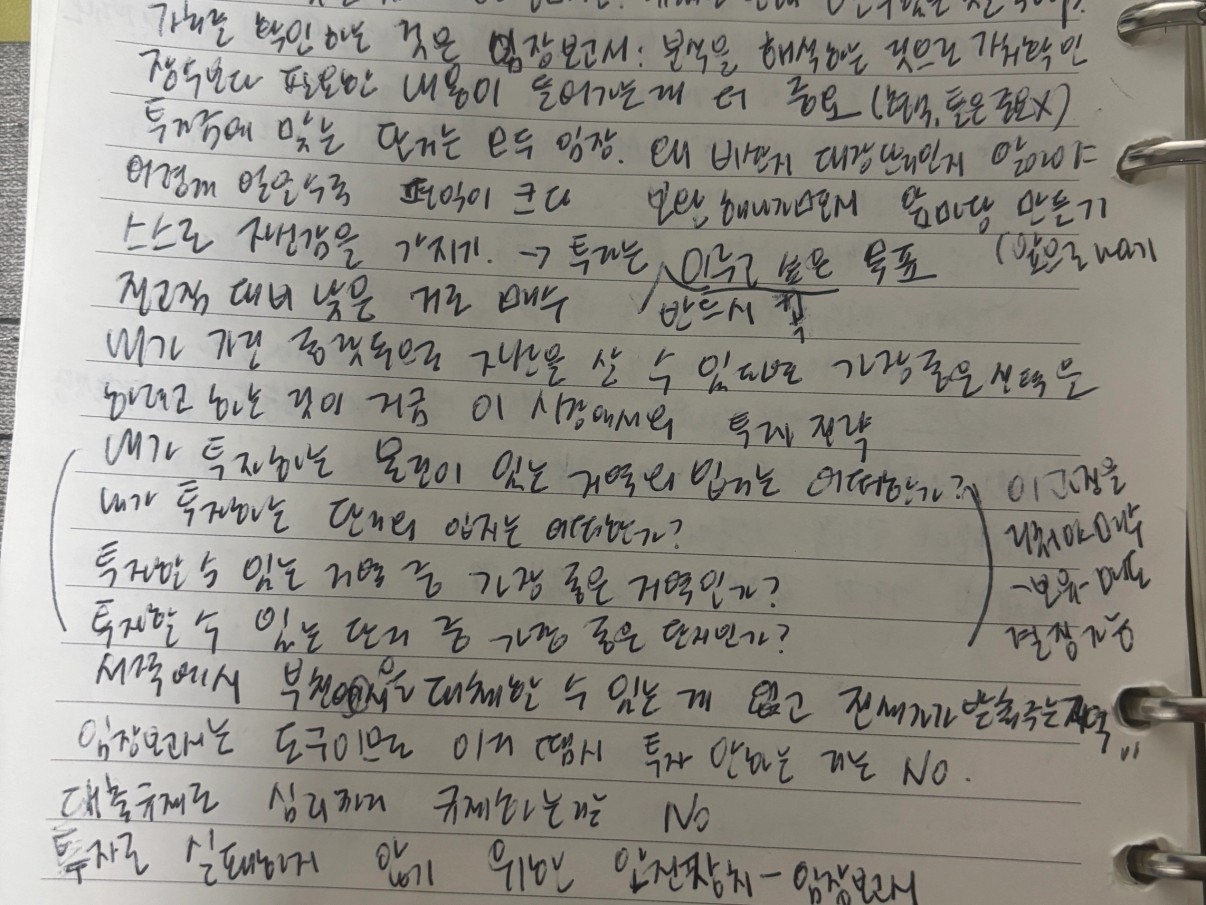 가치를 확인하는 것은 임장보고서: 분석을 해석하는 것으로 가치확인
장수보다 필요한 내용이 들어가는게 더 중요 (형식, 틀은 중요X)
투자금에 맞는 단지는 모두 임장. 왜 비싼지 대장단지인지 알아야
어렵게 얻을수록 편익이 크다 보완해나가면서 앞마당 만들기
스스로 자신감을 가지기. → 투자는 이루고 싶은 목표 (앞으로 내가
전고점 대비 낮은 거로 매수 반드시
내가 가진 종잣돈으로 자산을 살 수 있다면 가장 좋은 선택을
하려고 하는 것이 지금 이 시장에서의 투자 전략
내가 투자하는 물건이 있는 지역의 입지는 어떠한가? 이 과정을
내가 투자하는 단지의 입지는 어떠한가? 거쳐야 매수
투자할 수 있는 지역 중 가장 좋은 지역인가? -보유-매도
투자할 수 있는 단지 중 가장 좋은 단지인가? 결정가능
서쪽에서 부천을 대체할 수 있는 게 없고 전세가가 받쳐주는 지역"
임장보고서는 도구이므로 이거 땜시 투자 안하는 거는 No.
대출규제로 심리까지 규제하는거는 No
투자로 실패하지 않기 위한 안전장치 - 임장보고서